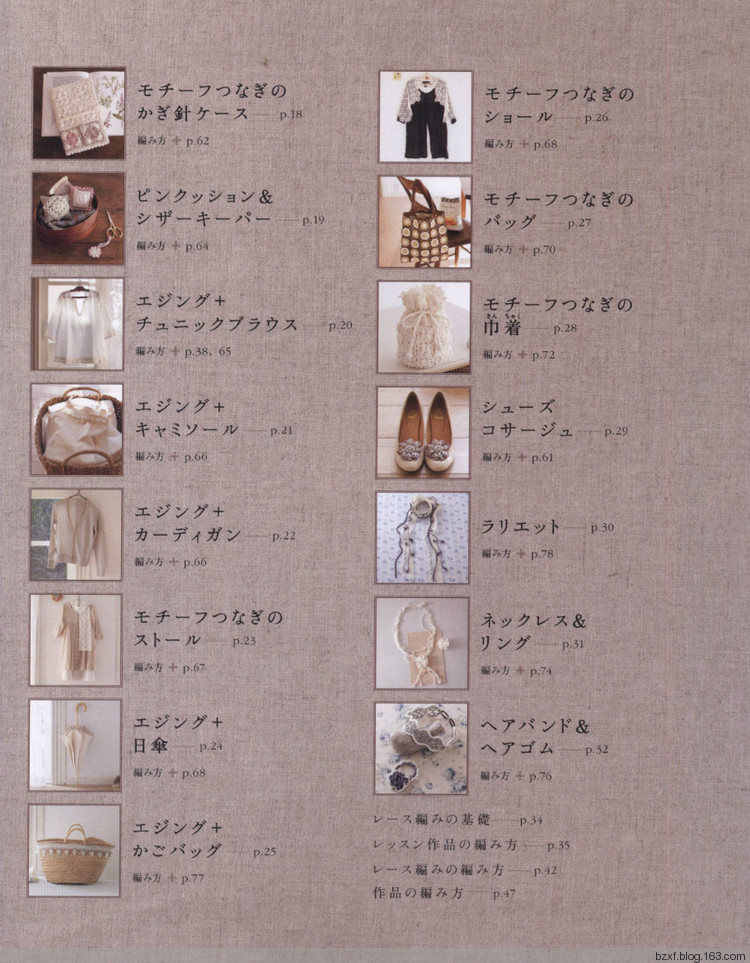 モチーフつなぎの
かぎ針ケース p.18
編み方 + p.62
ピンクッション&
シザーキーパー p.19
編み方 + p.64
エジング+
チュニックブラウス p.20
編み方 + p.38、65
エジング+
キャミソール p.21
編み方 + p.66
エジング+
カーディガン p.22
編み方 + p.66
モチーフつなぎの
ストール p.23
編み方 + p.67
エジング+
日傘 p.24
編み方 + p.68
エジング+
かごバッグ p.25
編み方 + p.77
モチーフつなぎの
ショール p.26
編み方 + p.68
モチーフつなぎの
バッグ p.27
編み方 + p.70
モチーフつなぎの
きん ちゃく
巾着 p.28
編み方 + p.72
シューズ
コサージュ p.29
編み方 + p.61
ラリエット p.30
編み方 + p.78
ネックレス&
リング p.31
編み方 + p.74
ヘアバンド&
ヘアゴム p.32
編み方 + p.76
レース編みの基礎 p.34
レッスン作品の編み方 p.35
レース編みの編み方 p.42
作品の編み方 p.47
bzxf.blog.163.com